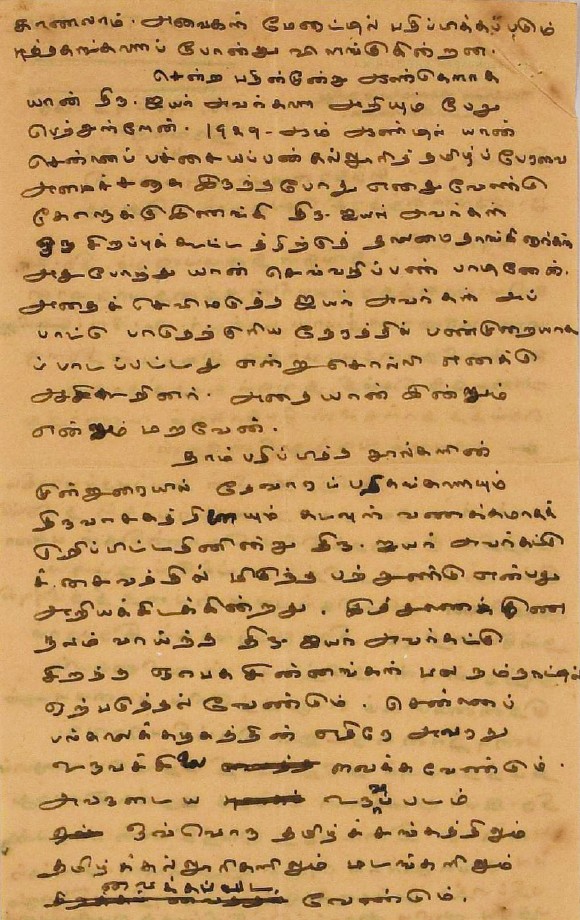 காணலாம். அவைகள் மேனாட்டில் பதிப்பிக்கப்படும்
புத்தகங்களைப் போன்று விளங்குகின்றன.
சென்ற பதினான்கு ஆண்டுகளாக
யான் திரு. ஐயர் அவர்களை அறியும் பேறு
பெற்றுள்ளேன். 1929-ஆம் ஆண்டில் யான்
சென்னைப் பச்சையப்பன் கல்லூரித் தமிழ்ப் பேரவை
அமைச்சனாக இருந்தபோது எனது வேண்டு
கோளுக்கு இணங்கி திரு. ஐயர் அவர்கள்
ஒரு சிறப்புக் கூட்டத்திற்குத் தலைமை தாங்கினார்கள்.
அதுபோழ்து யான் செவ்வழிப்பண் பாடினேன்.
அதைச் செவிமடுத்த ஐயர் அவர்கள் அப்
பாட்டு பாடுதற்குரிய நேரத்தில் பண்முறையாக
ப் பாடப்பட்டது என்று சொல்லி எனக்கு
ஆசி கூறினர். அதை யான் இன்றும்
என்றும் மறவேன்.
தாம் பதிப்பித்த நூல்களின்
முன்னுரையில் தேவாரப் பதிகங்களையும்
திருவாசகத்தினையும் கடவுள் வணக்கமாகக்
குறிப்பிட்டதினின்று திரு. ஐயர் அவர்கட்கு
ச் சைவத்தில் மிகுந்த பற்றுண்டு என்பது
அறியக்கிடக்கின்றது. இத்துணைக் குண
நலம் வாய்ந்த திரு. ஐயர் அவர்கட்கு
சிறந்த ஞாபக சின்னங்கள் பல நம்நாட்டில்
ஏற்படுத்தல் வேண்டும். சென்னைப்
பல்கலைக்கழகத்தின் எதிரே அவரது
உருவச்சிலை வைக்க வேண்டும்.
அவருடைய உருவப் படம்
ஒவ்வொரு தமிழ்ச் சங்கத்திலும்
தமிழ்க் கல்லூரிகளிலும் மடங்களிலும்
வைக்கப்பட வேண்டும்.